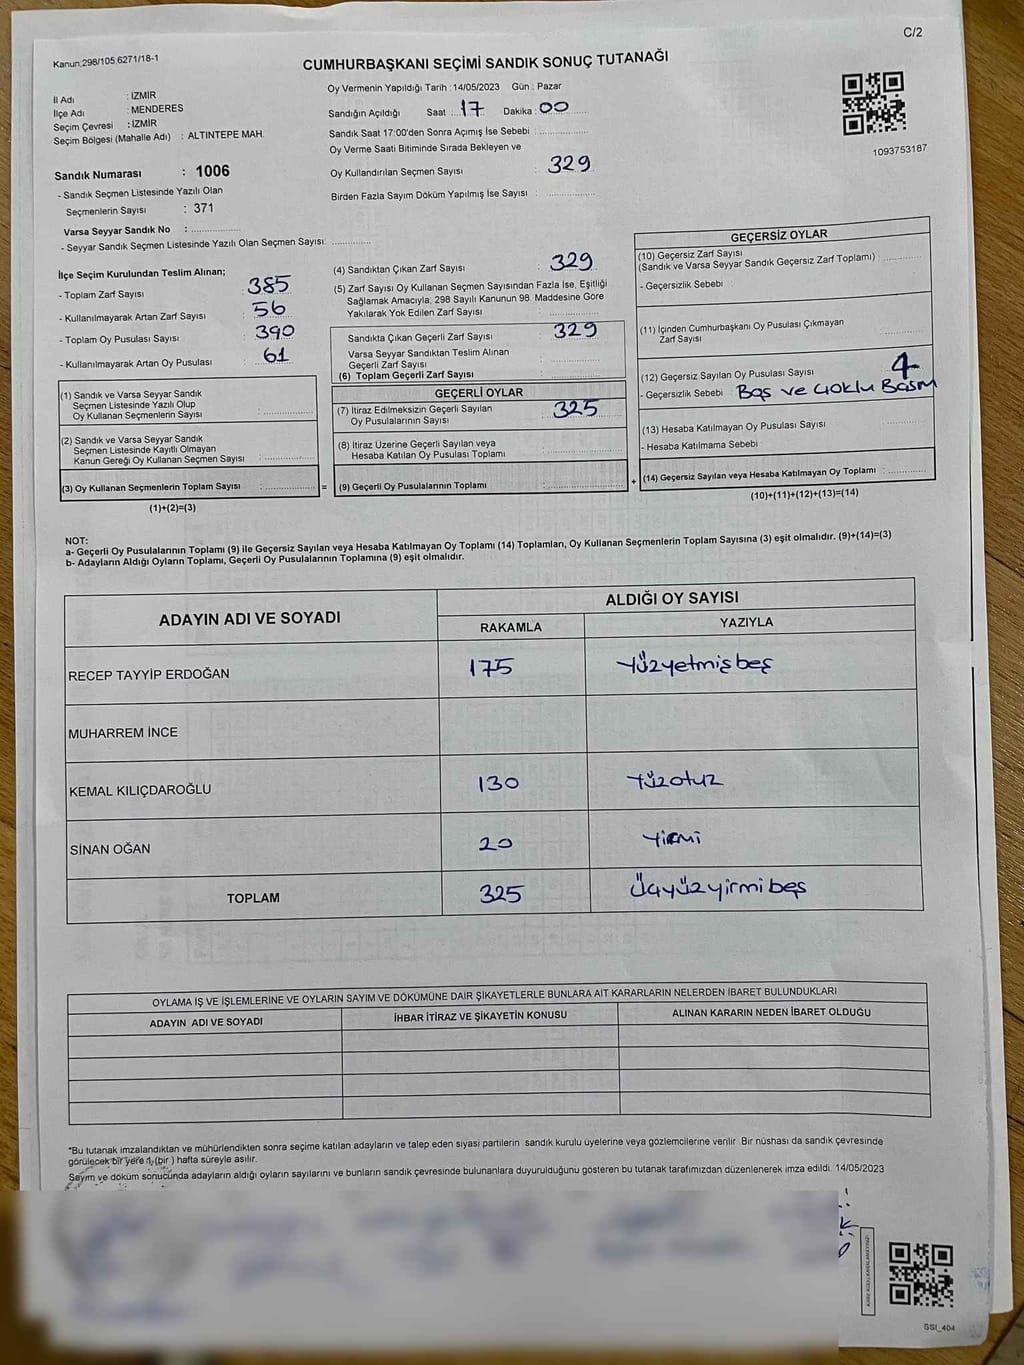 C/2
Kanun:298/105.6271/18-1
CUMHURBAŞKANI SEÇİMİ SANDIK SONUÇ TUTANAĞI
İl Adı : İZMİR
İlçe Adı : MENDERES
Seçim Çevresi : İZMİR
Seçim Bölgesi (Mahalle Adı) : ALTINTEPE MAH.
Oy Vermenin Yapıldığı Tarih :14/05/2023 Gün : Pazar
Sandığın Açıldığı Saat 17 Dakika : 00
Sandık Saat 17:00'den Sonra Açımış İse Sebebi :
Oy Verme Saati Bitiminde Sırada Bekleyen ve
Oy Kullandırılan Seçmen Sayısı : 329
Birden Fazla Sayım Döküm Yapılmış İse Sayısı :
1093753187
Sandık Numarası : 1006
- Sandık Seçmen Listesinde Yazılı Olan
Seçmenlerin Sayısı : 371
Varsa Seyyar Sandık No :
- Seyyar Sandık Seçmen Listesinde Yazılı Olan Seçmen Sayısı:
İlçe Seçim Kurulundan Teslim Alınan;
- Toplam Zarf Sayısı : 385
- Kullanılmayarak Artan Zarf Sayısı : 56
- Toplam Oy Pusulası Sayısı : 390
- Kullanılmayarak Artan Oy Pusulası : 61
(1) Sandık ve Varsa Seyyar Sandık
Seçmen Listesinde Yazılı Olup
Oy Kullanan Seçmenlerin Sayısı :
(2) Sandık ve Varsa Seyyar Sandık
Seçmen Listesinde Kayıtlı Olmayan
Kanun Gereği Oy Kullanan Seçmen Sayısı :
(3) Oy Kullanan Seçmenlerin Toplam Sayısı : =
(1)+(2)=(3)
(4) Sandıktan Çıkan Zarf Sayısı : 329
(5) Zarf Sayısı Oy Kullanan Seçmen Sayısından Fazla İse, Eşitliği
Sağlamak Amacıyla; 298 Sayılı Kanunun 98. Maddesine Göre
Yakılarak Yok Edilen Zarf Sayısı :
Sandıkta Çıkan Geçerli Zarf Sayısı : 329
Varsa Seyyar Sandıktan Teslim Alınan
Geçerli Zarf Sayısı :
(6) Toplam Geçerli Zarf Sayısı :
GEÇERLİ OYLAR
(7) İtiraz Edilmeksizin Geçerli Sayılan
Oy Pusulalarının Sayısı : 325
(8) İtiraz Üzerine Geçerli Sayılan veya
Hesaba Katılan Oy Pusulası Toplamı :
(9) Geçerli Oy Pusulalarının Toplamı : +
GEÇERSİZ OYLAR
(10) Geçersiz Zarf Sayısı
(Sandık ve Varsa Seyyar Sandık Geçersiz Zarf Toplamı) :
- Geçersizlik Sebebi :
(11) İçinden Cumhurbaşkanı Oy Pusulası Çıkmayan
Zarf Sayısı :
(12) Geçersiz Sayılan Oy Pusulası Sayısı : 4
- Geçersizlik Sebebi : Boş ve çoklu Basım
(13) Hesaba Katılmayan Oy Pusulası Sayısı :
- Hesaba Katılmama Sebebi :
(14) Geçersiz Sayılan veya Hesaba Katılmayan Oy Toplamı :
(10)+(11)+(12)+(13)=(14)
NOT:
a- Geçerli Oy Pusulalarının Toplamı (9) ile Geçersiz Sayılan veya Hesaba Katılmayan Oy Toplamı (14) Toplamları, Oy Kullanan Seçmenlerin Toplam Sayısına (3) eşit olmalıdır. (9)+(14)=(3)
b- Adayların Aldığı Oyların Toplamı, Geçerli Oy Pusulalarının Toplamına (9) eşit olmalıdır.
ADAYIN ADI VE SOYADI ALDIĞI OY SAYISI
RAKAMLA YAZIYLA
RECEP TAYYİP ERDOĞAN 175 Yüzyetmişbeş
MUHARREM İNCE
KEMAL KILIÇDAROĞLU 130 Yüzotuz
SİNAN OĞAN 20 Yirmi
TOPLAM 325 Üçyüzyirmibeş
OYLAMA İŞ VE İŞLEMLERİNE VE OYLARIN SAYIM VE DÖKÜMÜNE DAİR ŞİKAYETLERLE BUNLARA AİT KARARLARIN NELERDEN İBARET BULUNDUKLARI
ADAYIN ADI VE SOYADI İHBAR İTİRAZ VE ŞİKAYETİN KONUSU ALINAN KARARIN NEDEN İBARET OLDUĞU
*Bu tutanak imzalandıktan ve mühürlendikten sonra seçime katılan adayların ve talep eden siyasi partilerin sandık kurulu üyelerine veya gözlemcilerine verilir. Bir nüshası da sandık çevresinde
görülecek bir yere 1 (bir ) hafta süreyle asılır.
Sayım ve döküm sonucunda adayların aldığı oyların sayılarını ve bunların sandık çevresinde bulunanlara duyurulduğunu gösteren bu tutanak tarafımızdan düzenlenerek imza edildi. 14/05/2023
SSI_404